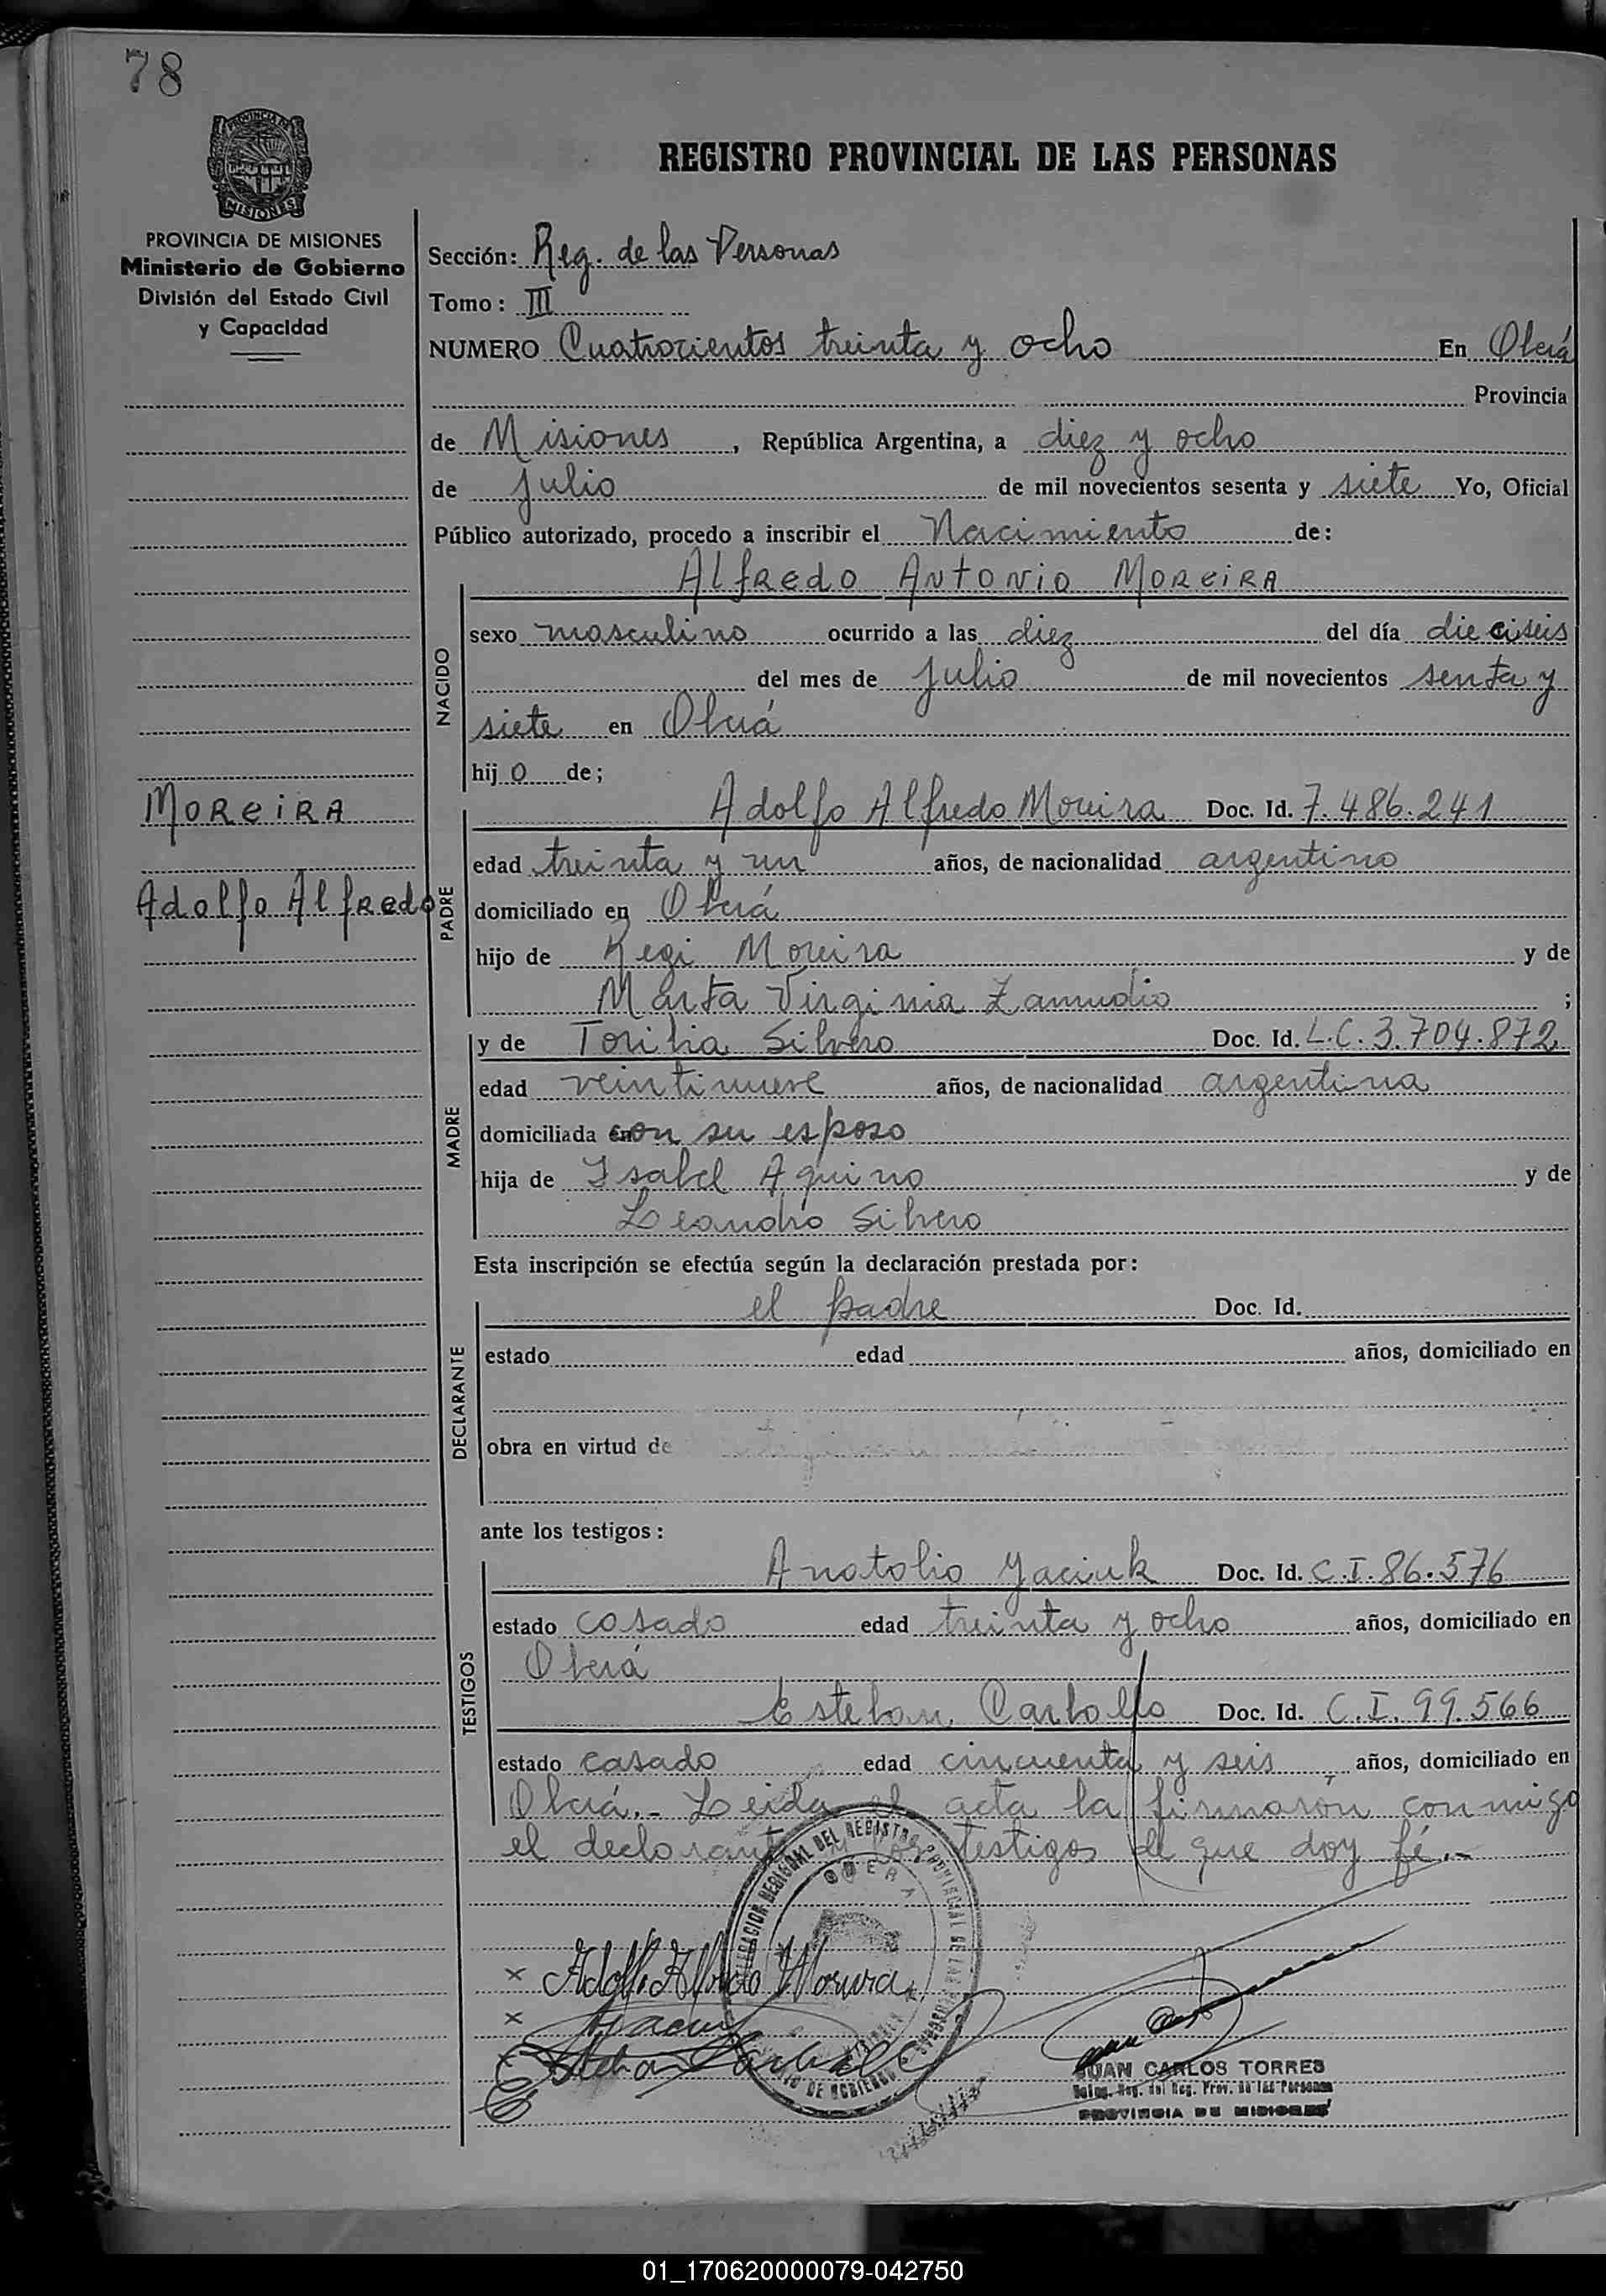 78
PROVINCIA DE
MISIONES
REGISTRO PROVINCIAL DE LAS PERSONAS
PROVINCIA DE MISIONES
Ministerio de Gobierno
División del Estado Civil
y Capacidad
Sección: Reg. de las Personas
Tomo: III
NUMERO Cuatrocientos treinta y ocho En Oberá
Provincia
de Misiones, República Argentina, a diez y ocho
de julio de mil novecientos sesenta y siete Yo, Oficial
Público autorizado, procedo a inscribir el Nacimiento de:
Alfredo Antonio Moreira
NACIDO
sexo masculino ocurrido a las diez del día dieciseis
del mes de julio de mil novecientos senta y
siete en Oberá
hijo de;
MOREIRA
Adolfo Alfredo
PADRE
Adolfo Alfredo Moreira Doc. Id. 7.486.241
edad treinta y un años, de nacionalidad argentino
domiciliado en Oberá
hijo de Regi Moreira y de
Marta Virginia Zamudio ;
MADRE
y de Silvero Doc. Id. L.C. 3.704.872
edad veintinueve años, de nacionalidad argentina
domiciliada con su esposo
hija de Isabel Aquino y de
Leandro Silvero
Esta inscripción se efectúa según la declaración prestada por:
DECLARANTE
el padre Doc. Id.
estado edad años, domiciliado en
obra en virtud de
ante los testigos:
TESTIGOS
Anatolio Yaciuk Doc. Id. C.I. 86.576
estado casado edad treinta y ocho años, domiciliado en
Oberá
Esteban Carballo Doc. Id. C.I. 99.566
estado casado edad cincuenta y seis años, domiciliado en
Oberá.- Leida el acta la firmaron conmigo
el declarante y los testigos de que doy fé.-
DELEGACION REGIONAL DEL REGISTRO PROVINCIAL DE LAS PERSONAS
OBERA
MINISTERIO DE GOBIERNO
x Adolfo Alfredo Moreira
x
Esteban Carballo
JUAN CARLOS TORRES
Deleg. Reg. del Reg. Prov. de las Personas
PROVINCIA DE MISIONES
01_170620000079-042750